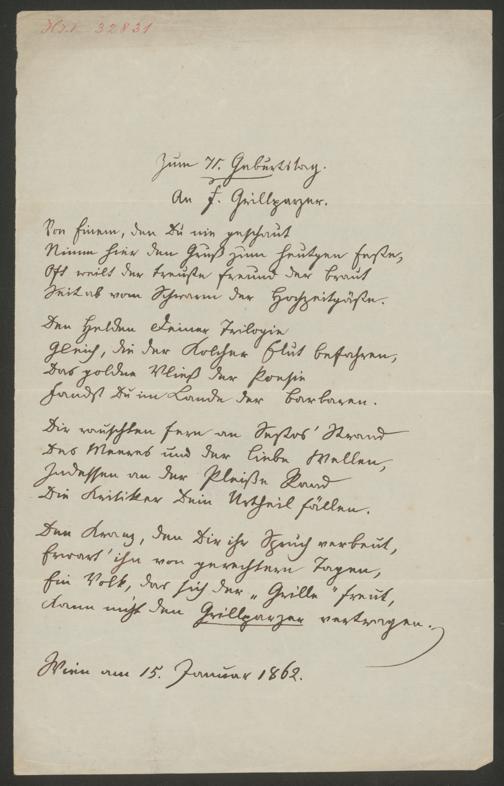 32831
Zum 71. Geburtstag.
An F. Grillparzer.
Von Einem, den Du nie geschaut
Nimm hier den Gruß zum heutgen Feste,
Oft weilt der treuste Freund der Braut
Seitab vom Schwarm der Hochzeitgäste.
Den Helden Deiner Trilogie
Gleich, die der Kolcher Flut befahren,
Das goldne Vließ der Poesie
Fandst Du im Lande der Barbaren.
Dir rauschten fern an Sestos' Strand
Des Meeres und der Liebe Wellen,
Indessen an der Pleiße Rand
Die Kritiker Dein Urtheil fällen.
Den Kranz, den Dir ihr Spruch verbeut,
Erwart' ihn von gerechtern Tagen,
Ein Volk, das sich der „Grille" freut,
Kann nicht den Grillparzer vertragen.
Wien am 15. Januar 1862.